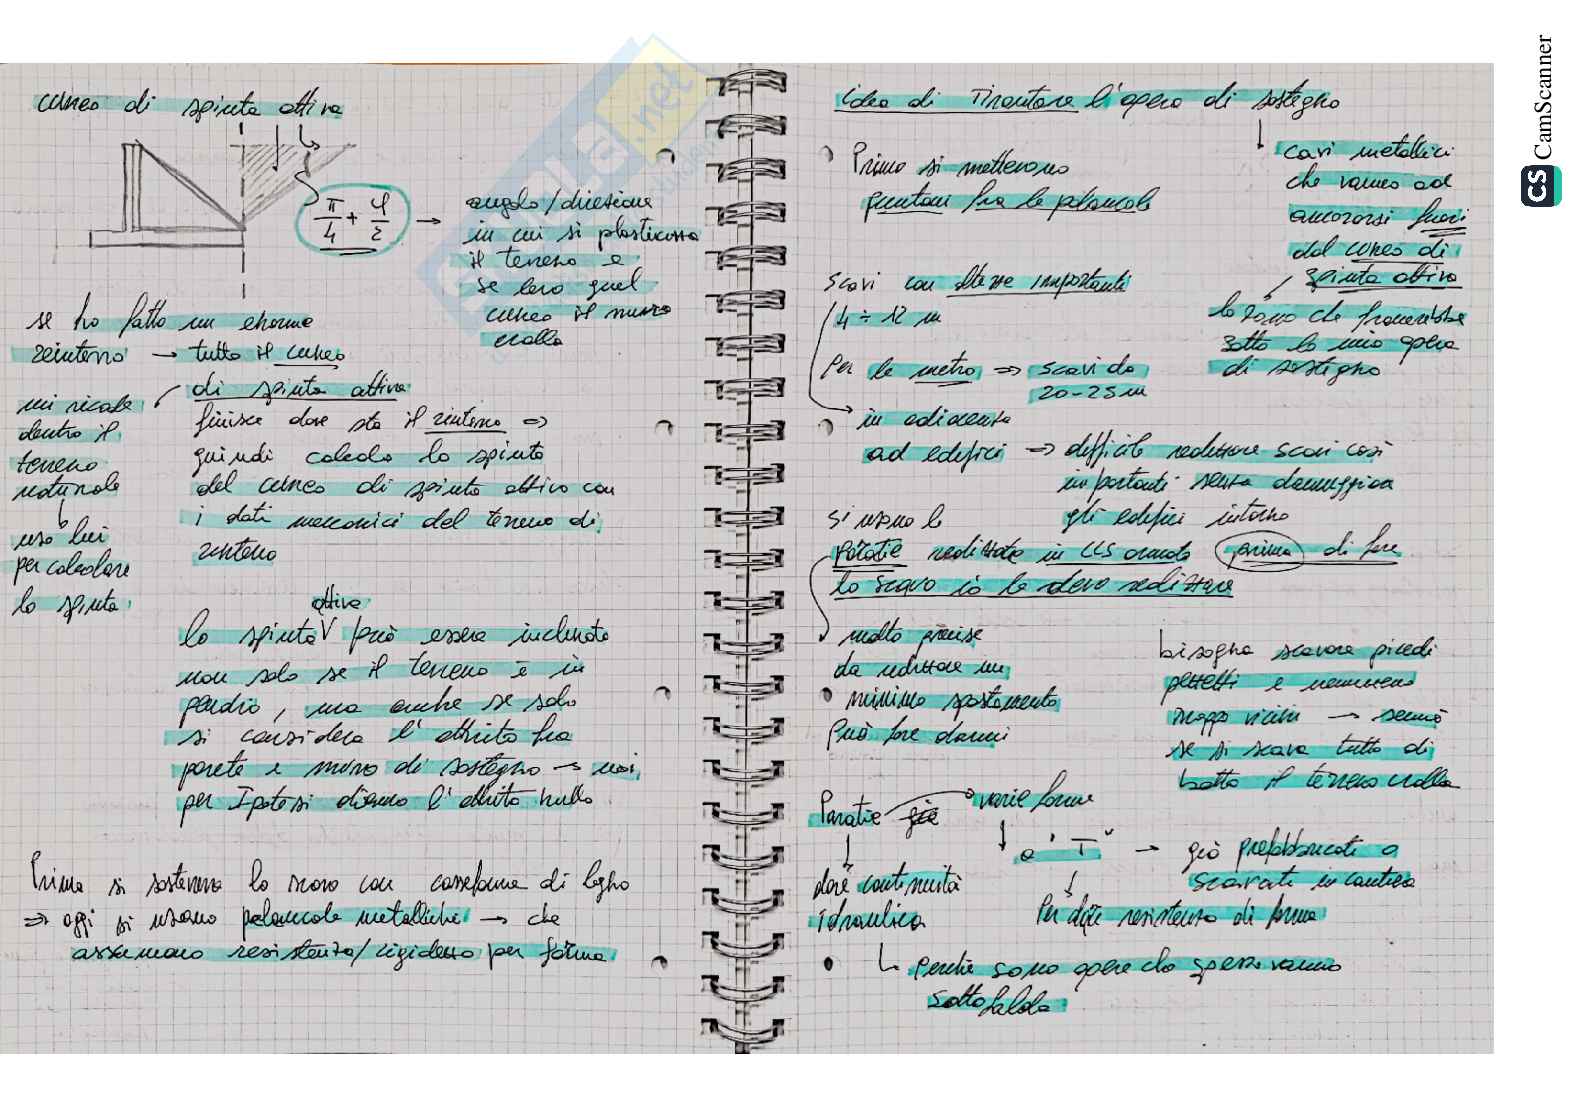 cuneo di spinta attiva
π/4 + φ/2 →
angolo/direzione
in cui si plasticizza
il terreno e
se levo quel
cuneo il muro
crolla
se ho fatto un enorme
reinterro → tutto il cuneo
di spinta attiva
finisce dove sta il rinterro ⇒
quindi calcolo la spinta
del cuneo di spinta attiva con
i dati meccanici del terreno di
rinterro
mi ricade
dentro il
terreno
naturale
uso lui
per calcolare
la spinta
attiva
la spinta V può essere inclinata
non solo se il terreno è in
pendio, ma anche se solo
si considera l'attrito fra
parete e muro di sostegno → noi
per Ipotesi diamo l'attrito nullo
Prima si sosteneva lo scavo con casseforme di legno
⇒ oggi si usano palancole metalliche → che
assumono resistenza/rigidezza per forma
idea di Tirantare l'opera di sostegno
cavi metallici
che vanno ad
ancorarsi fuori
dal cuneo di
spinta attiva
la zona che franerebbe
sotto la mia opera
di sostegno
Prima si mettevano
puntoni fra le plancole
scavi con altezze importanti
4 ÷ 12 m
Per le metro ⇒ scavi da
20-25 m
in adiacenza
ad edifici ⇒ difficile realizzare scavi così
importanti senza danneggiare
gli edifici intorno
si usano le
Paratie realizzate in CLS armato prima di fare
lo scavo io le devo realizzare
molto precise
da realizzare un
minimo spostamento
Può fare danni
bisogna scavare piccoli
pezzetti e nemmeno
troppo vicini → sennò
se si scava tutto di
botto il terreno crolla
Paratie varie forme
a 'T" → già prefabbricate o
scavate in cantiere
Per dare resistenza di forma
dare continuità
idraulica
Perchè sono opere che spesso vanno
sotto falda
CS CamScanner
net